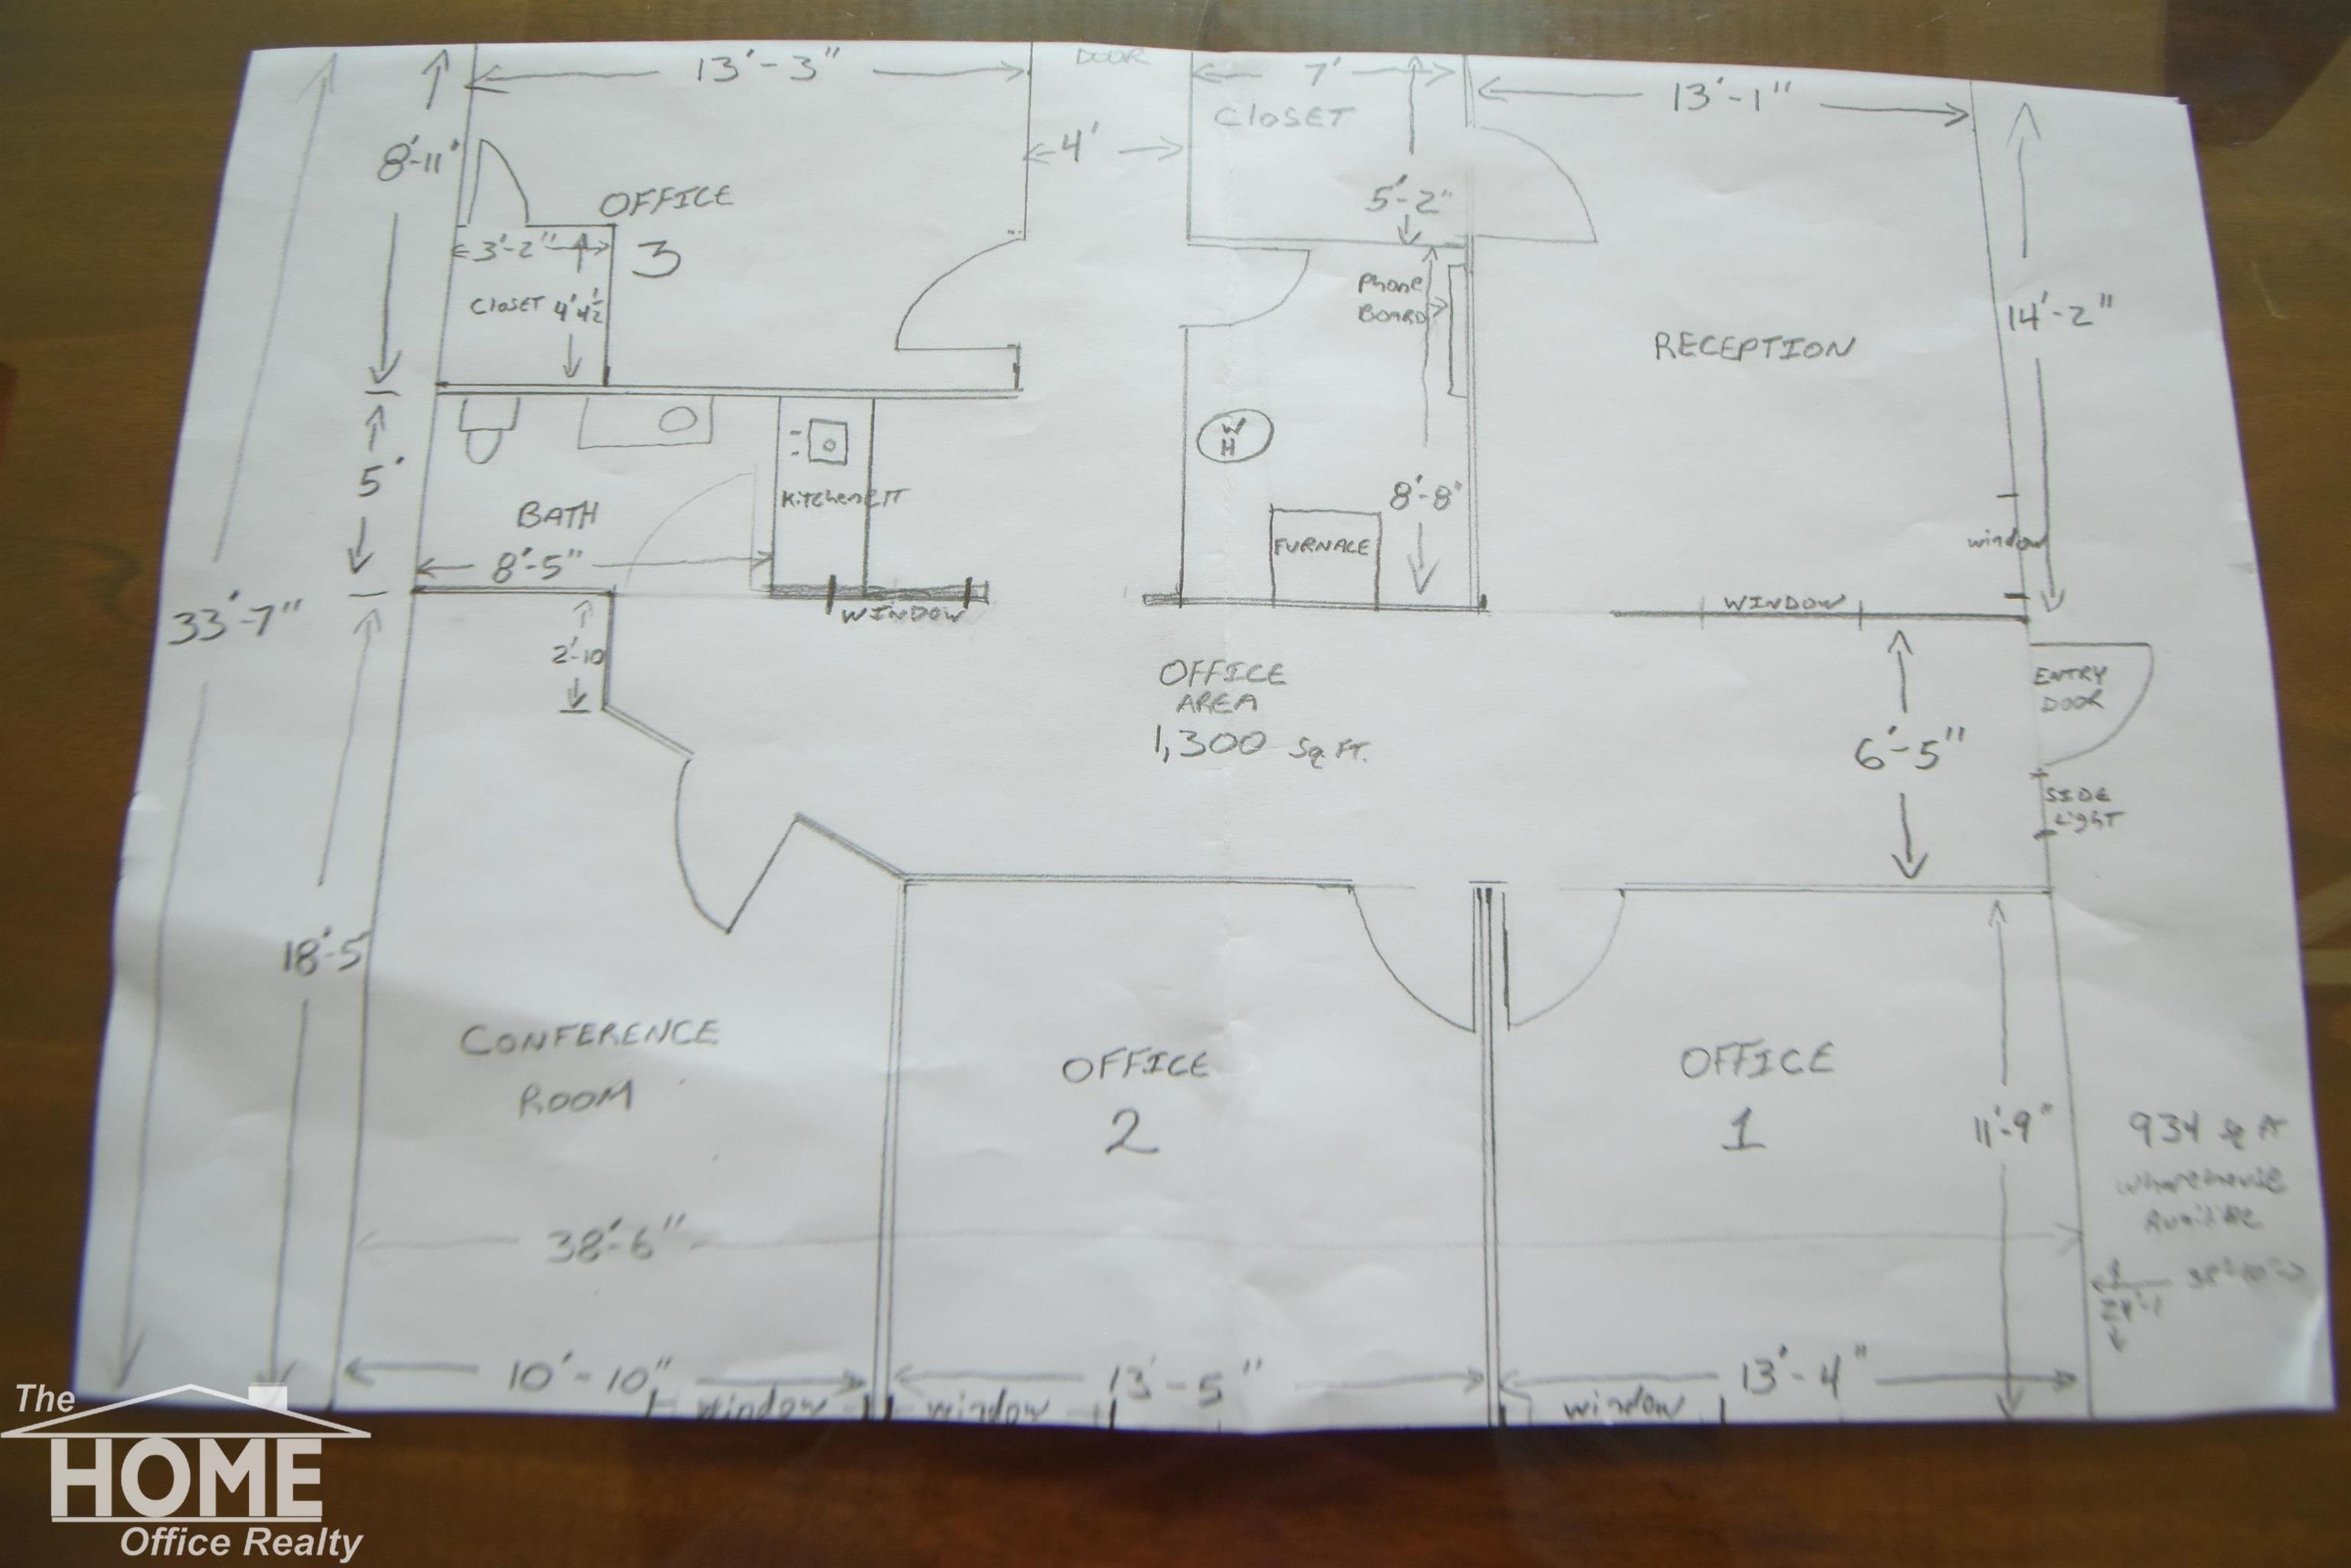 DOOR
13'-3"
7'
13'-1"
CLOSET
4'
8'-11"
5'-2"
OFFICE
3
3'-2"
CLOSET 4'4½
Phone
BOARD
14'-2"
RECEPTION
W
H
5'
KitchenETT
8'-8"
BATH
FURNACE
window
8'-5"
WINDOW
WINDOW
33'-7"
2'-10
OFFICE
AREA
1,300 Sq. FT.
ENTRY
DOOR
6'-5"
SIDE
LighT
18'-5
CONFERENCE
ROOM
OFFICE
2
OFFICE
1
11'-9"
934 Sq FT
38'-6"
24'-1
10'-10"
13'-5"
13'-4"
window
window
window
The
HOME
Office Realty